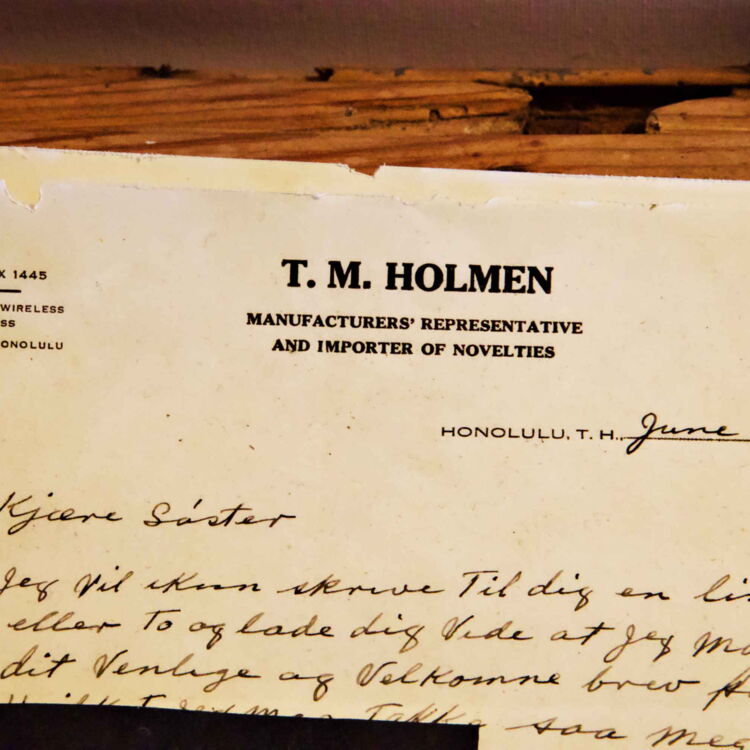 X 1445
WIRELESS
SS
ONOLULU
T. M. HOLMEN
MANUFACTURERS' REPRESENTATIVE
AND IMPORTER OF NOVELTIES
HONOLULU, T. H., June
Kjære Søster
Jeg vil kun skrive Til dig en li
eller To og lade dig Vide at Jeg Mo
dit Venlige og Velkomne brev f
Takke saa med